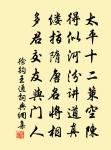 太平十二策空陳
得似河汾講道真
縷拾隋唐名將相
多君交友與門人
徐鈞王通詞典網集